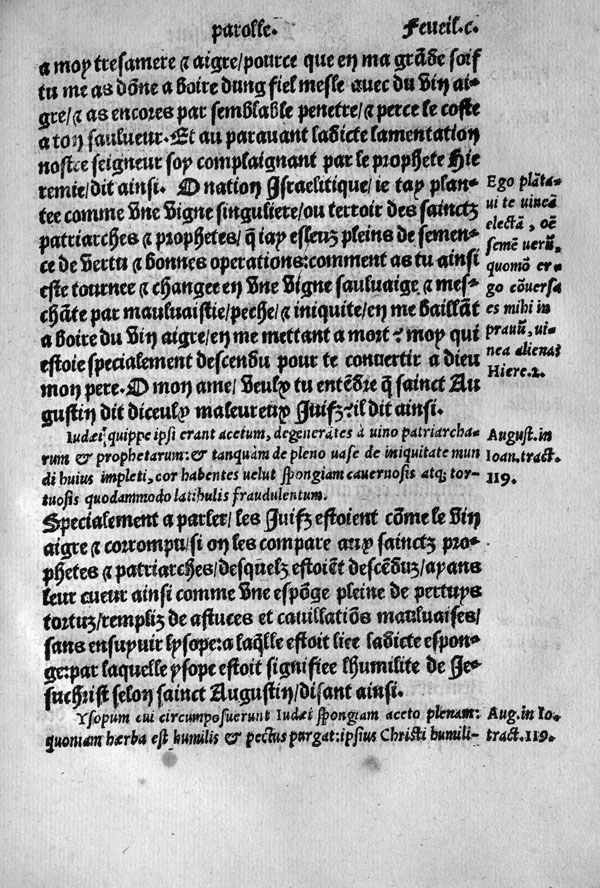 parolle. Feueil.c.
a moy tresamere & aigre/pource que en ma grãde soif
tu me as dõne a boire dung fiel mesle auec du vin ai-
gre/& as encores par semblable penetre/& perce le coste
a ton saulueur. Et au parauant ladicte lamentation
nostre seigneur soy complaignant par le prophete Hie
remie/dit ainsi. O nation Israelitique/ie tay plan-
tee comme vne vigne singuliere/ou terroir des sainctz
patriarches & prophetes/q̃ iay esleuz pleins de semen-
ce de vertu & bonnes operations:comment as tu ainsi
este tournee & changee en vne vigne sauluaige & mes-
chãte par mauluaistie/peche/& iniquite/en me baillãt
a boire du vin aigre/en me mettant a mort? moy qui
estoie specialement descendu pour te conuertir a dieu
mon pere. O mon ame/veulx tu entẽdre q̃ sainct Au
gustin dit diceulx maleureux Juifz?il dit ainsi.
Ego plãta-
ui te vineã
electã, oẽ
semẽ verũ,
quomõ er-
go cõuersa
es mihi in
prauũ, ui-
nea aliena?
Hiere.2.
Iudæi quippe ipsi erant acetum, degenerãtes à uino patriarcha-
rum & prophetarum: & tanquàm de pleno uase de iniquitate mun
di huius impleti, cor habentes uelut spongiam cauernosis atq; tor-
tuosis quodammodo latibulis fraudulentum.
August.in
Ioan.tract.
119.
Specialement a parler/les Juifz estoient cõme le vin
aigre & corrompu/si on les compare aux sainctz pro-
phetes & patriarches/desquelz estoiẽt descẽduz/ayans
leur cueur ainsi comme vne espõge pleine de pertuys
tortuz/rempliz de astuces et cauillatiõs mauluaises/
sans ensuyuir lysope:a laq̃lle estoit liee ladicte espon-
ge:par laquelle ysope estoit signifiee lhumilite de Je-
suchrist selon sainct Augustin/disant ainsi.
Ysopum cui circumposuerunt Iudæi spongiam aceto plenam:
quoniam hærba est humilis & pectus purgat:ipsius Christi humili-
Aug.in Io.
tract.119.